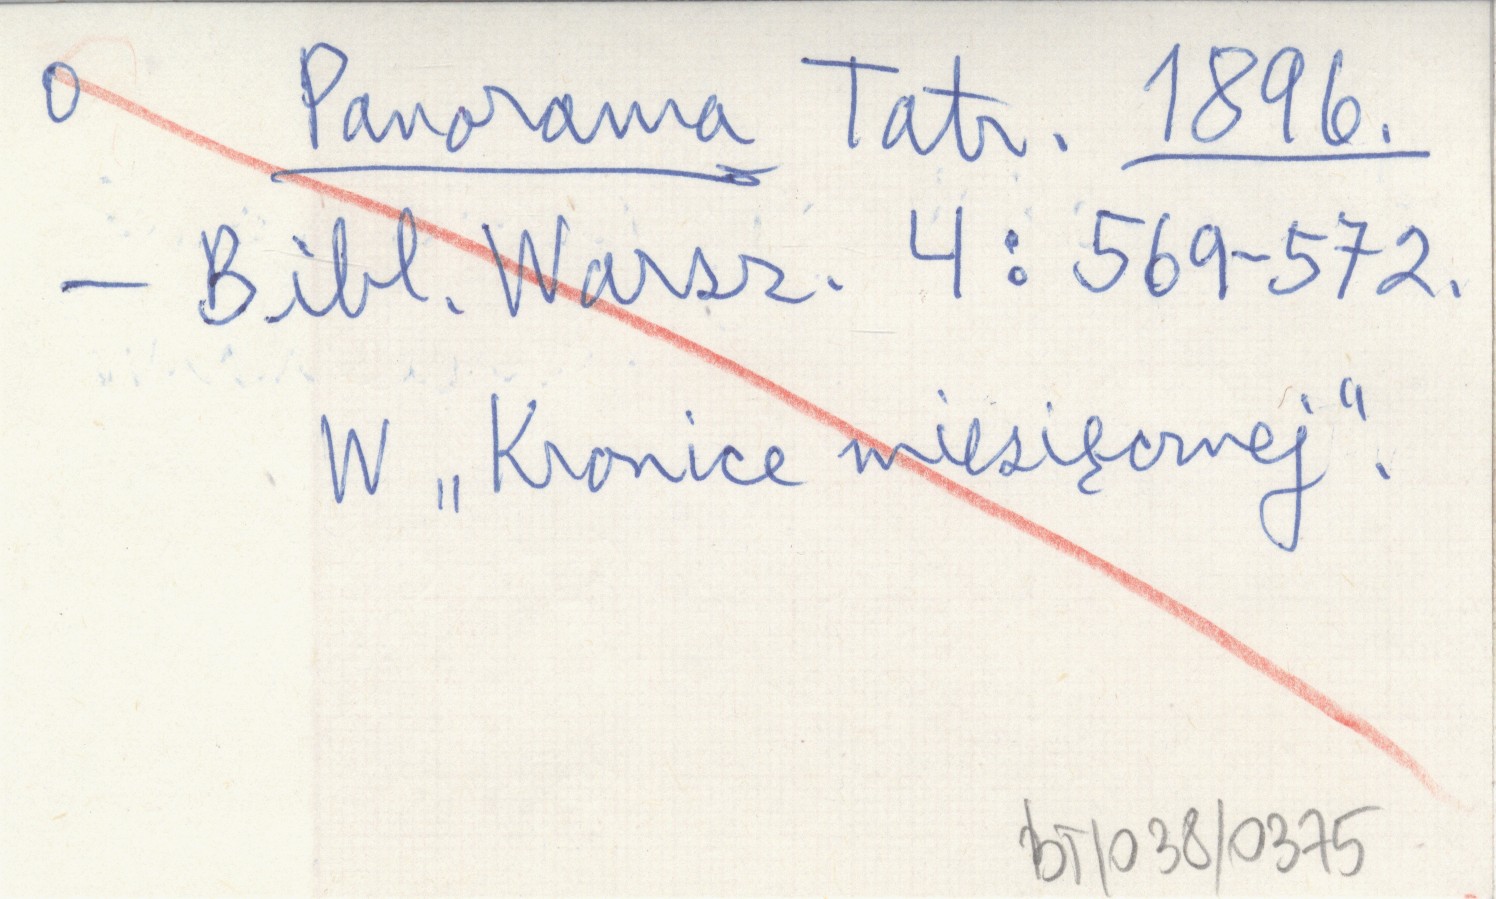 O Panorama Tatr. 1896.
— Bibl. Warsz. 4: 569-572.
W „Kronice miesięcznej".
bT/038/0375